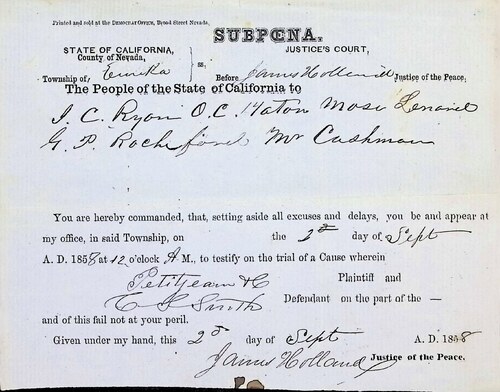 Printed and sold at the DEMOCRAT OFFICE, Broad Street Nevada,
SUBPŒNA.
STATE OF CALIFORNIA,
County of Nevada,
ss.
JUSTICE'S COURT,
Township of Eureka
Before James Holland Justice of the Peace.
The People of the State of California to
J. C. Ryon O. C. Haton Mose Lenard
G. P. Rocheford Mr Cashman
You are hereby commanded, that, setting aside all excuses and delays, you be and appear at
my office, in said Township, on the 2d day of Sept
A. D. 1858 at 12 o'clock A M., to testify on the trial of a Cause wherein
Petitjean & C Plaintiff and
Smith Defendant on the part of the —
and of this fail not at your peril.
Given under my hand, this 2d day of Sept A. D. 1858
James Holland Justice of the Peace.